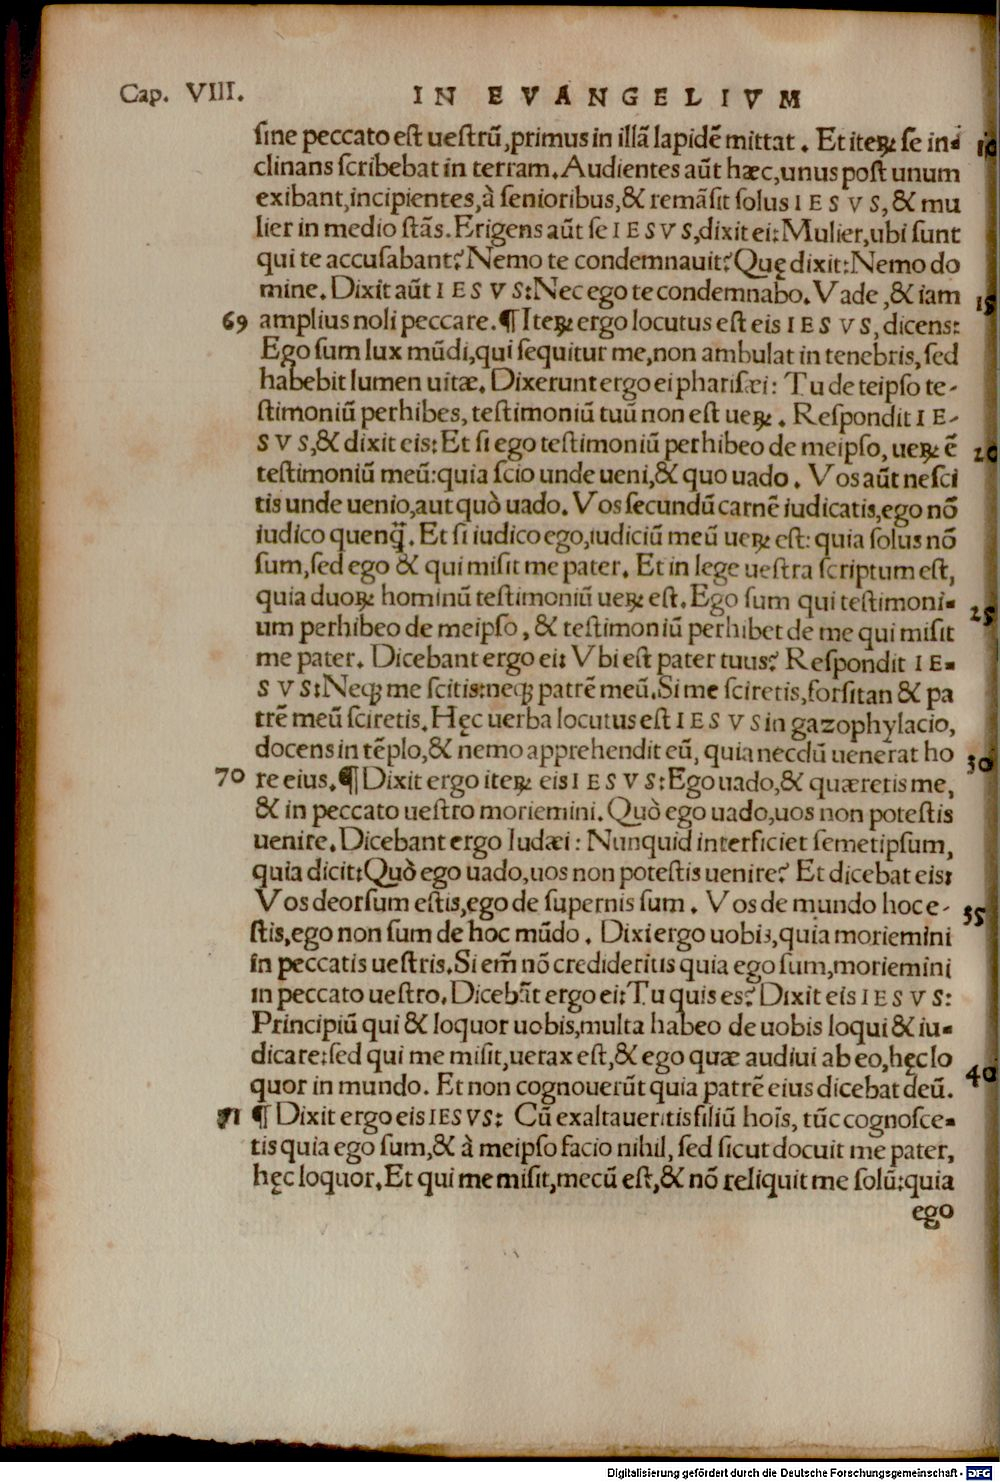 Cap. VIII. IN EVANGELIVM
ſine peccato eſt ueſtrũ,primus in illã lapidẽ mittat . Et iteꝝ ſe in- 10
clinans ſcribebat in terram.Audientes aũt hæc,unus poſt unum
exibant,incipientes,à ſenioribus,& remãſit ſolus IESVS,& mu
lier in medio ſtãs.Erigens aũt ſe IESVS,dixit ei:Mulier,ubi ſunt
qui te accuſabant?Nemo te condemnauit?Quę dixit:Nemo do
mine.Dixit aũt IESVS:Nec ego te condemnabo.Vade ,& iam 15
69 amplius noli peccare.¶Iteꝝ ergo locutus eſt eis IESVS, dicens:
Ego ſum lux mũdi,qui ſequitur me,non ambulat in tenebris, ſed
habebit lumen uitæ. Dixerunt ergo ei phariſæi: Tu de teipſo te-
ſtimoniũ perhibes, teſtimoniũ tuũ non eſt ueꝝ . Reſpondit IE-
SVS,& dixit eis: Et ſi ego teſtimoniũ perhibeo de meipſo, ueꝝ ẽ 20
teſtimoniũ meũ:quia ſcio unde ueni,& quo uado . Vos aũt neſci
tis unde uenio,aut quò uado. Vos ſecundũ carnẽ iudicatis,ego nõ
iudico quenq̃. Et ſi iudico ego,iudiciũ meũ ueꝝ eſt: quia ſolus nõ
ſum,ſed ego & qui miſit me pater. Et in lege ueſtra ſcriptum eſt,
quia duoꝝ hominũ teſtimoniũ ueꝝ eſt.Ego ſum qui teſtimoni- 25
um perhibeo de meipſo, & teſtimoniũ perhibet de me qui miſit
me pater. Dicebant ergo ei: Vbi eſt pater tuus? Reſpondit IE-
SVS:Neqꝫ me ſcitis:neqꝫ patrẽ meũ.Si me ſciretis,forſitan & pa
trẽ meũ ſciretis.Hęc uerba locutus eſt IESVS in gazophylacio,
docens in tẽplo,& nemo apprehendit eũ, quia necdũ uenerat ho 30
70 re eius.¶Dixit ergo iteꝝ eis IESVS:Ego uado,& quæretis me,
& in peccato ueſtro moriemini.Quò ego uado,uos non poteſtis
uenire.Dicebant ergo Iudæi : Nunquid interficiet ſemetipſum,
quia dicit:Quò ego uado,uos non poteſtis uenire? Et dicebat eis:
Vos deorſum eſtis,ego de ſupernis ſum . Vos de mundo hoc e- 35
ſtis,ego non ſum de hoc mũdo . Dixi ergo uobis,quia moriemini
in peccatis ueſtris.Si em̃ nõ credideritis quia ego ſum,moriemini
in peccato ueſtro.Dicebãt ergo ei:Tu quis es? Dixit eis IESVS:
Principiũ qui & loquor uobis,multa habeo de uobis loqui & iu-
dicare:ſed qui me miſit,uerax eſt,& ego quæ audiui ab eo,hęc lo
quor in mundo. Et non cognouerũt quia patrẽ eius dicebat deũ. 40
71 ¶ Dixit ergo eis IESVS: Cũ exaltaueritis filiũ hoĩs, tũc cognoſce-
tis quia ego ſum,& à meipſo facio nihil, ſed ſicut docuit me pater,
hęc loquor.Et qui me miſit,mecũ eſt,& nõ reliquit me ſolũ:quia
ego
Digitalisierung gefördert durch die Deutsche Forschungsgemeinschaft - DFG